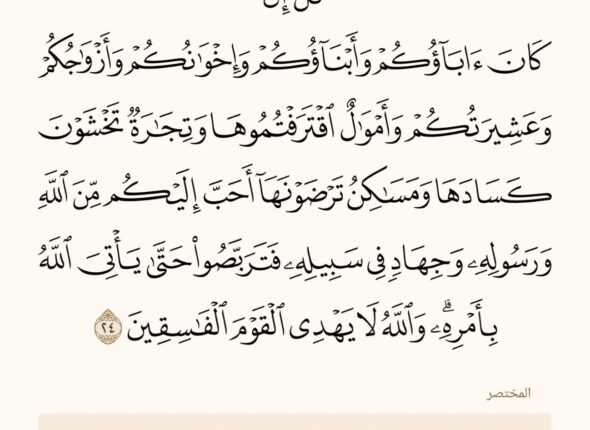 قُلۡ إِن
كَانَ ءَابَآؤُكُمۡ وَأَبۡنَآؤُكُمۡ وَإِخۡوَٰنُكُمۡ وَأَزۡوَٰجُكُمۡ
وَعَشِيرَتُكُمۡ وَأَمۡوَٰلٌ ٱقۡتَرَفۡتُمُوهَا وَتِجَٰرَةٞ تَخۡشَوۡنَ
كَسَادَهَا وَمَسَٰكِنُ تَرۡضَوۡنَهَآ أَحَبَّ إِلَيۡكُم مِّنَ ٱللَّهِ
وَرَسُولِهِۦ وَجِهَادٖ فِي سَبِيلِهِۦ فَتَرَبَّصُواْ حَتَّىٰ يَأۡتِيَ ٱللَّهُ
بِأَمۡرِهِۦۗ وَٱللَّهُ لَا يَهۡدِي ٱلۡقَوۡمَ ٱلۡفَٰسِقِينَ ٢٤
المختصر